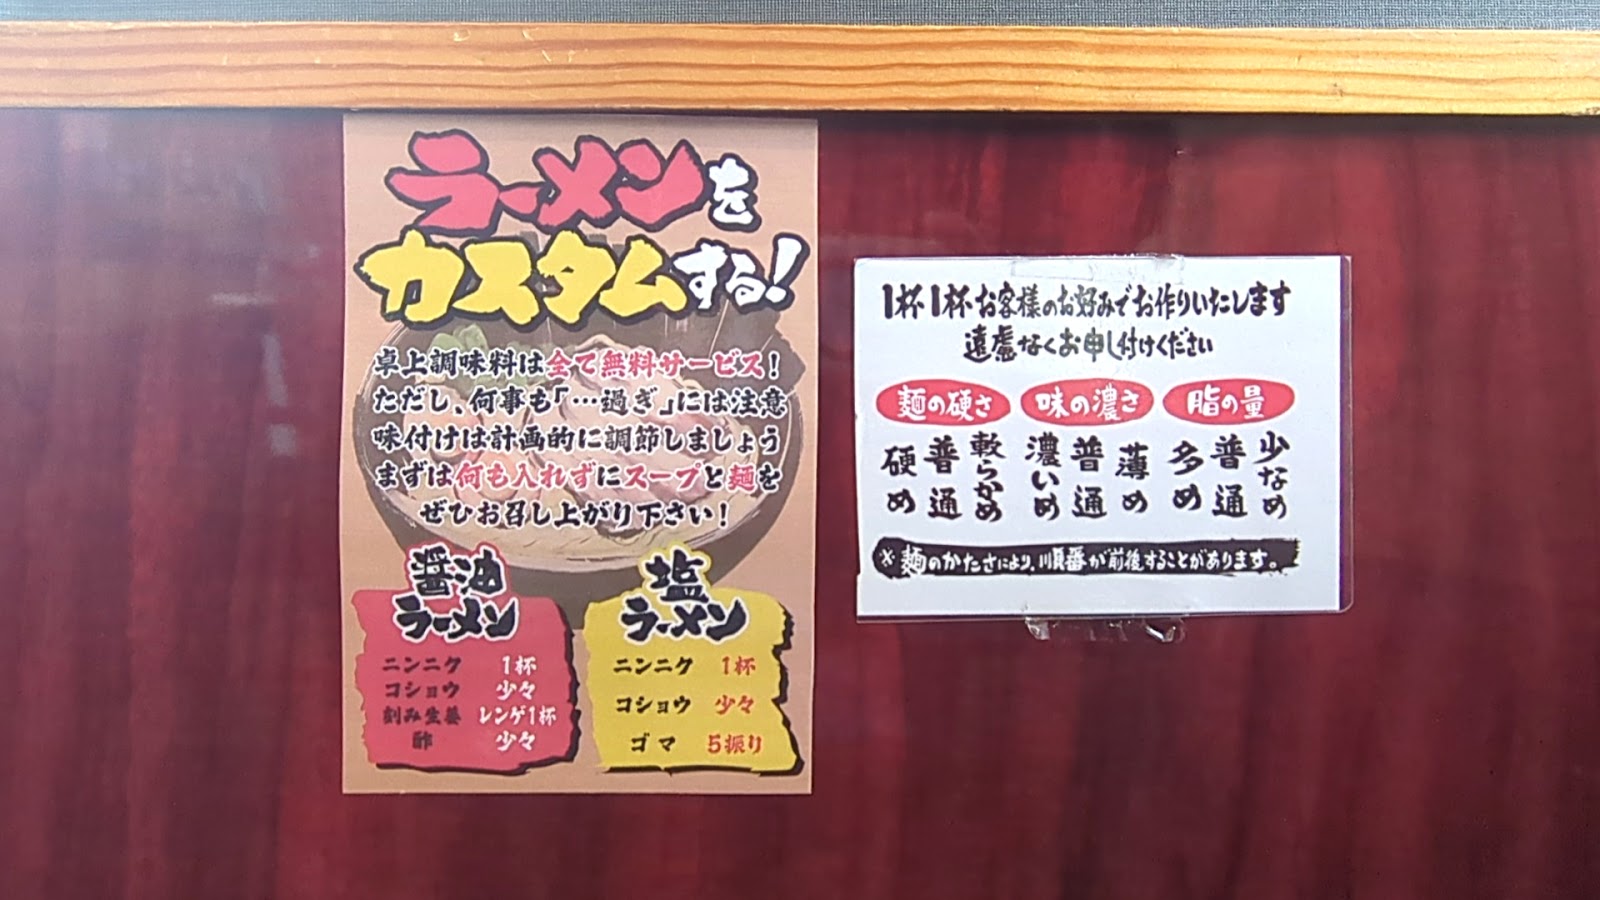 ラーメンを
カスタムする!
卓上調味料は全て無料サービス!
ただし、何事も「…過ぎ」には注意
味付けは計画的に調節しましょう
まずは何も入れずにスープと麺を
ぜひお召し上がり下さい!
醤油
ラーメン
ニンニク 1杯
コショウ 少々
刻み生姜 レンゲ1杯
酢 少々
塩
ラーメン
ニンニク 1杯
コショウ 少々
ゴマ 5振り
1杯1杯お客様のお好みでお作りいたします
遠慮なくお申し付けください
麺の硬さ 味の濃さ 脂の量
硬め 普通 軟らかめ 濃いめ 普通 薄め 多め 普通 少なめ
※麺のかたさにより、順番が前後することがあります。